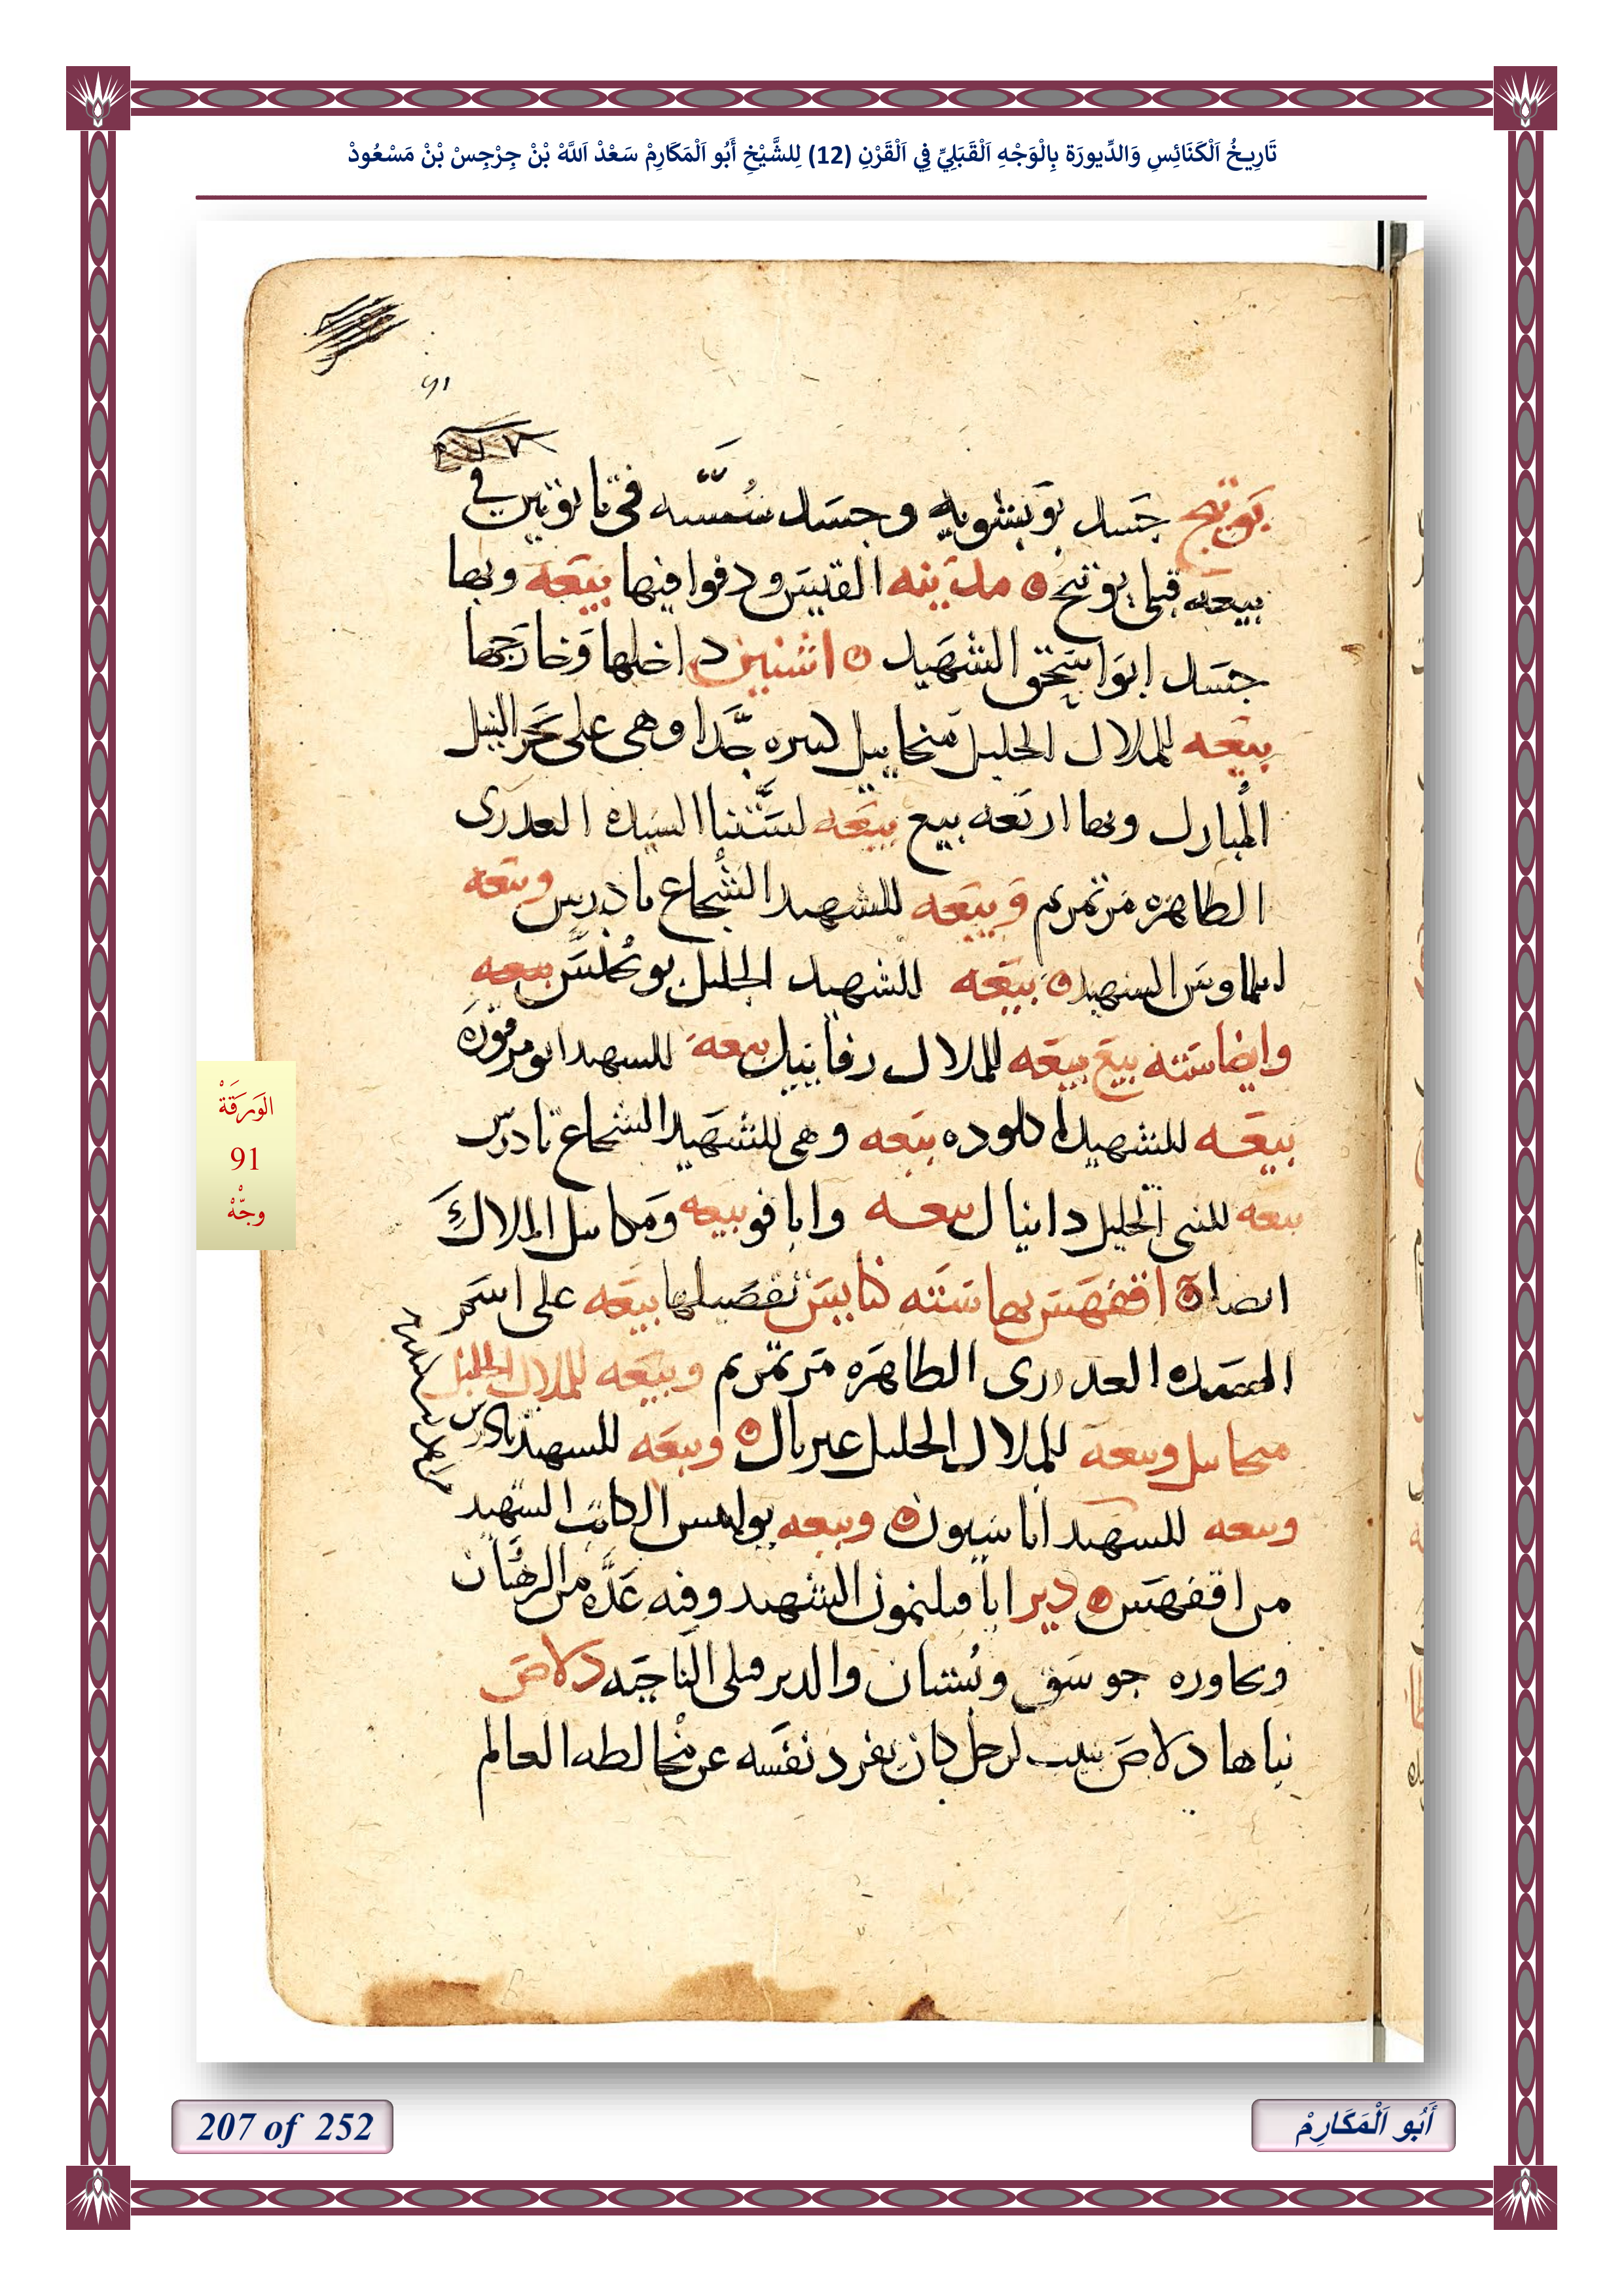 تَارِيخُ اَلْكَنَائِسِ وَالدِّيورَة بِالْوَجْهِ اَلْقَبَلِيِّ فِي اَلْقَرْنِ (12) لِلشَّيْخِ أَبُو اَلْمَكَارِمْ سَعْدْ اَللَّهْ بْنْ جِرْجِسْ بْنْ مَسْعُودْ
91
بوتيج جسد بوبشويه وجسد في تابوتين في
بيعه قبلي بوتيج مدينه القيس ودفوا فيها بيعه وبها
جسد ابو اسحق الشهيد اشنين داخلها وخارجها
بيعه للملاك الجليل ميخاييل كبيره جدا وهي على بحر النيل
المبارك وبها اربعه بيع بيعه لستنا السيده العدرى
الطاهره مرتمريم وبيعه للشهيد الشجاع تادرس وبيعه
الشهيد بيعه للشهيد الجليل بوبخلس بيعه
وايضا سته بيع بيعه للملاك رفاييل بيعه للشهيد ابو مرقوره
بيعه للشهيد اكلوده بيعه وهي للشهيد الشجاع تادرس
بيعه للنبي الجليل دانيال بيعه وابا فو بيعه وميكاييل الملاك
ايضا اقفهس بها سته كنايس تفصيلها بيعه على اسم
السيده العدرى الطاهره مرتمريم وبيعه للملاك الجليل
ميخاييل وبيعه للملاك الجليل غبريال وبيعه للشهيد تادرس
وبيعه للشهيد ابا سيون وبيعه بولهس الكاتب الشهيد
من اقفهس دير ابا فيلمون الشهيد وفيه عده من الرهبان
ويجاوره جوسق وبستان والدير قبلي الناحيه دلاص
بناها دلاص لرجل كان يفرد نفسه عن مخالطه العالم
الوَرَقَةْ
91
وجّهْ
207 of 252
أَبُو اَلْمَكَارِمْ